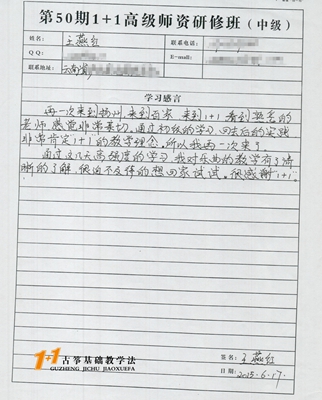 第50期1+1高级师资研修班（中级）
姓名： 王燕红 联系电话：
QQ： E-mail：
联系地址： 云南省
学习感言
再一次来到扬州，来到百家，来到1+1看到熟悉的
老师感觉非常亲切，通过初级的学习，回去后的实践
非常肯定1+1的教学理念，所以我再一次来了。
通过这几天高强度的学习，我对乐曲的教学有了清
晰的了解，很迫不及待的想回家试试。很感谢1+1。
1+1 古筝基础教学法
GUZHENG JICHU JIAOXUEFA
签名： 王燕红
日期： 2015.6.17.